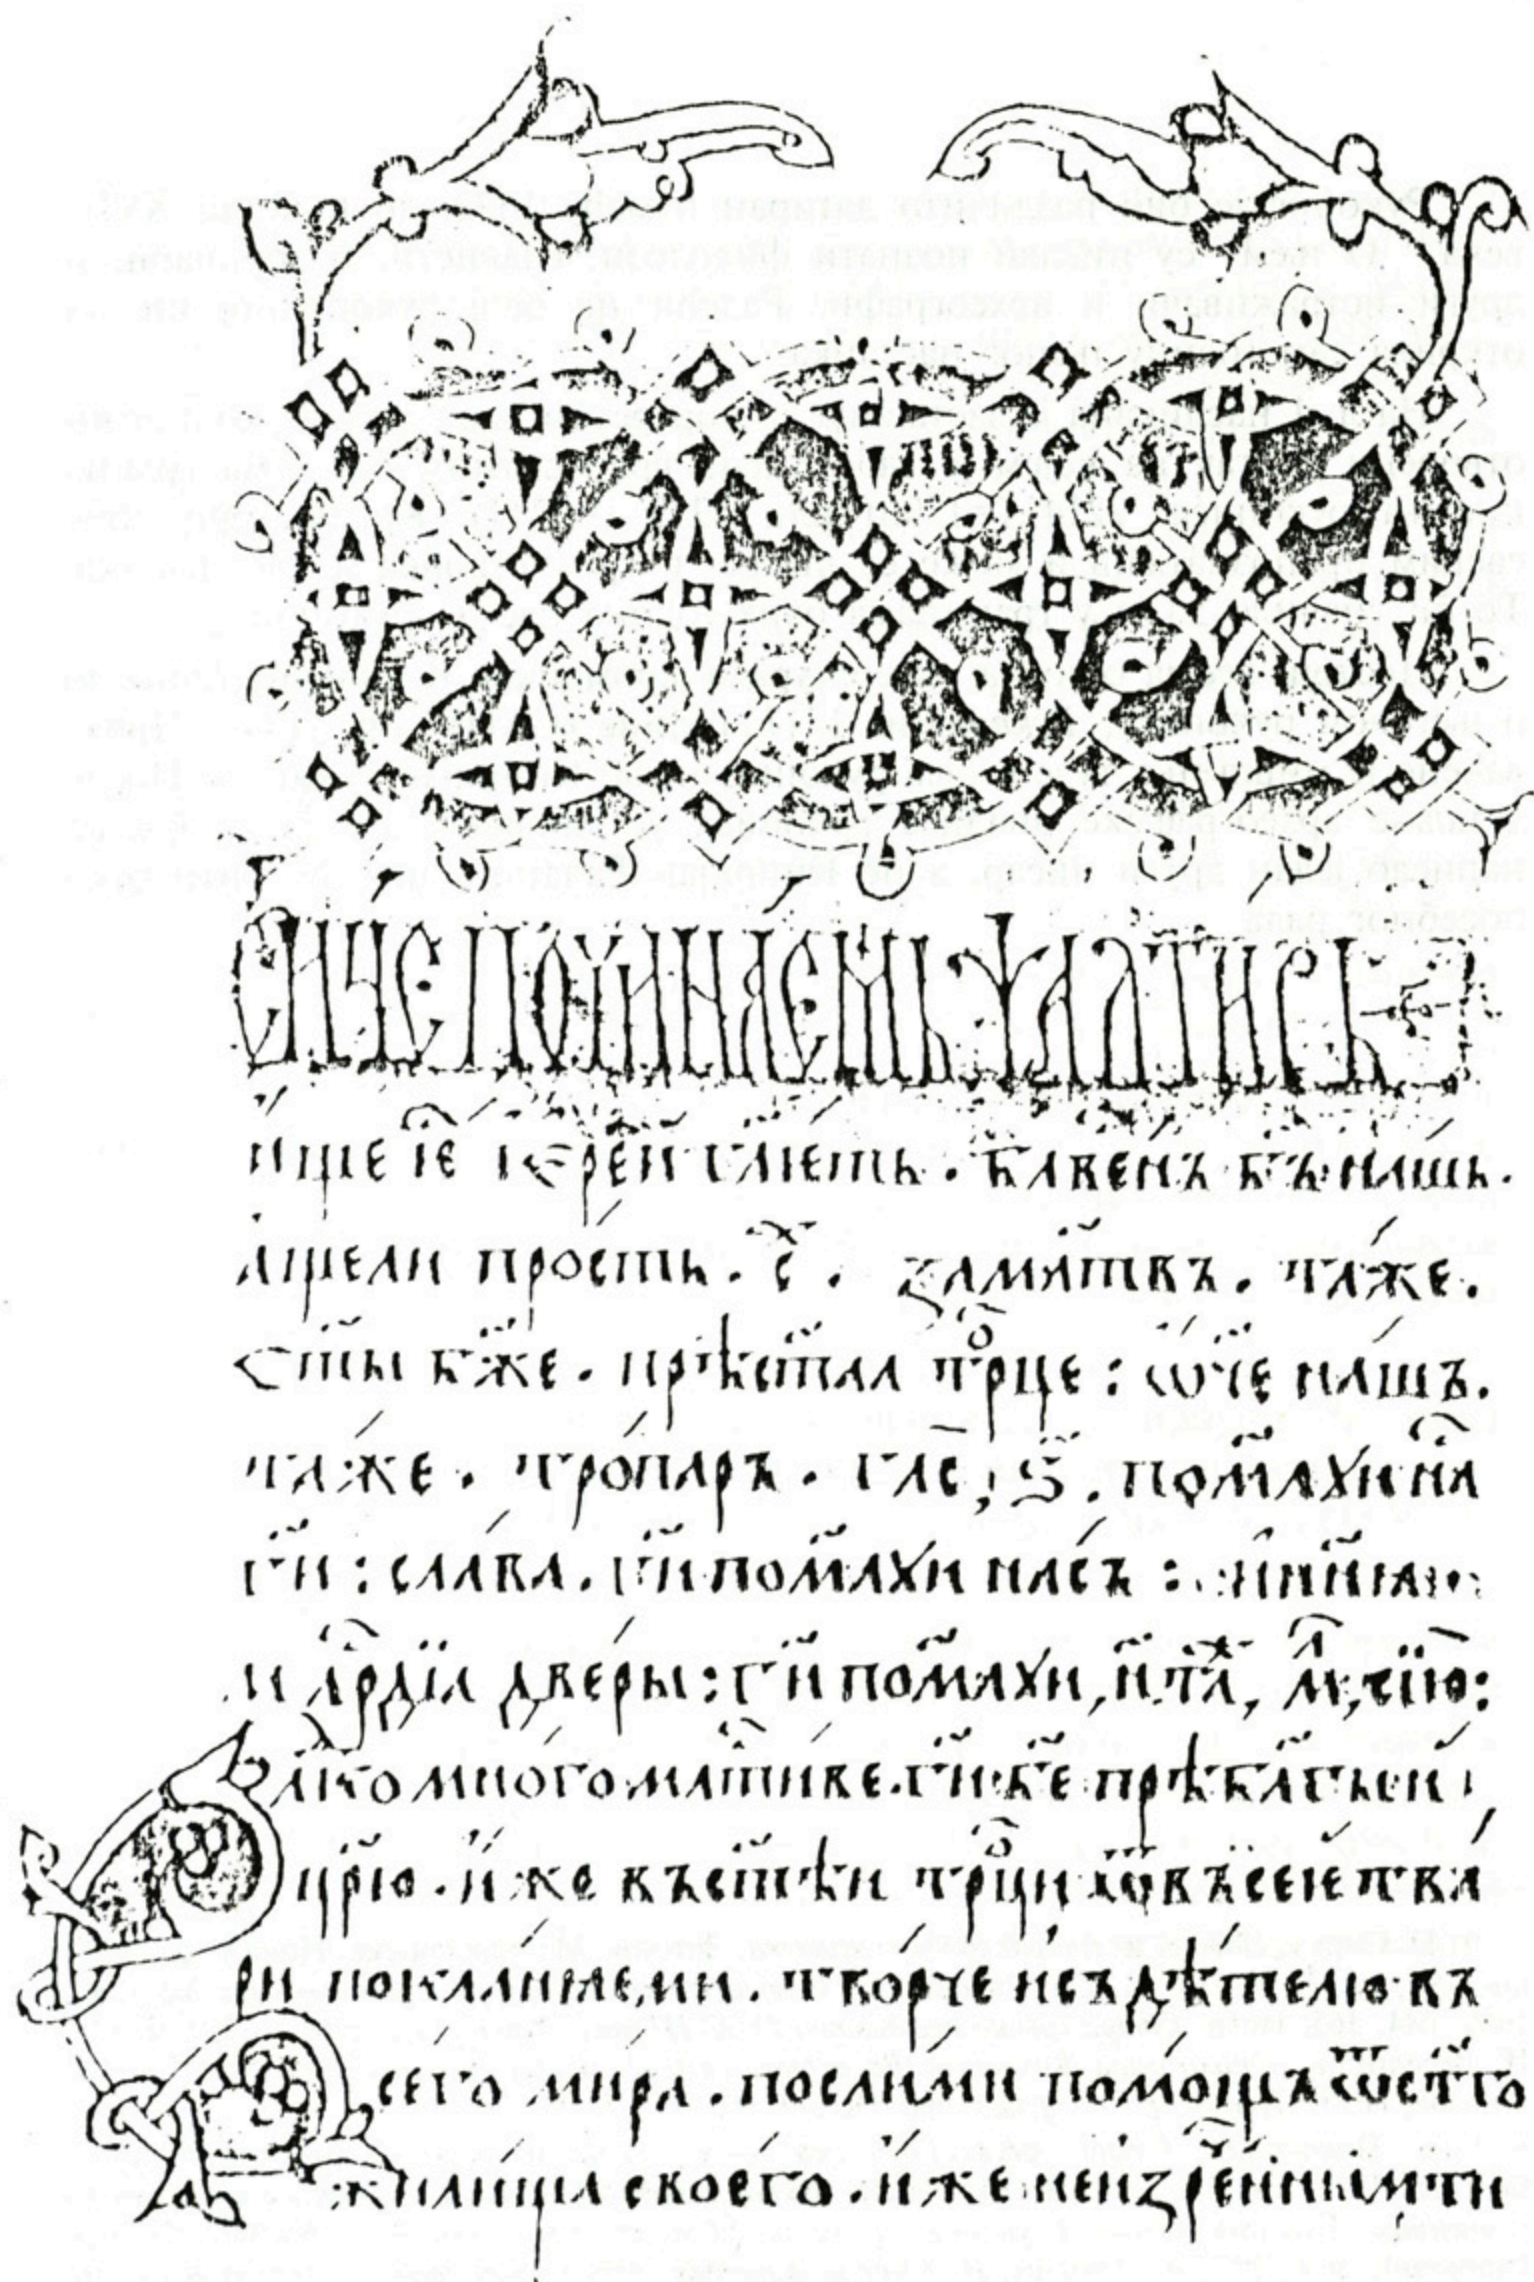 СИЧЕ ПОЧИНАЕМЬ ѰАЛТИРЬ
и҆ще і҆є҆ і҆ерѐи гл҃ѥть . бл҃авенъ б҃ъ нашь .
а҆щели простъ . за мл҃твъ . та́же .
ст҃ы б҃же . прѣст҃аа трⷪ҇це : ѡ҃че нашъ .
та́же . тро́паръ . глас , ѕ҃ . пом҃лꙋи на
г҃и : сла́ва . г҃и пом҃лꙋи насъ :
двѐры : г҃и пом҃лꙋи ,
ꙗ҆ко мно́гомл҃тиве . г҃и б҃е прѣбл҃гы и
цр҃ю . и҆же въ ст҃ѣи трⷪ҇ци ѿ въсеѥ тва
ри покланꙗеми . тво́рче и съдѣ́телю въ
сего ми́ра . посли́ ми по́мощъ ѿ ст҃го
жили́ща своего . и҆же неизре́нным ти